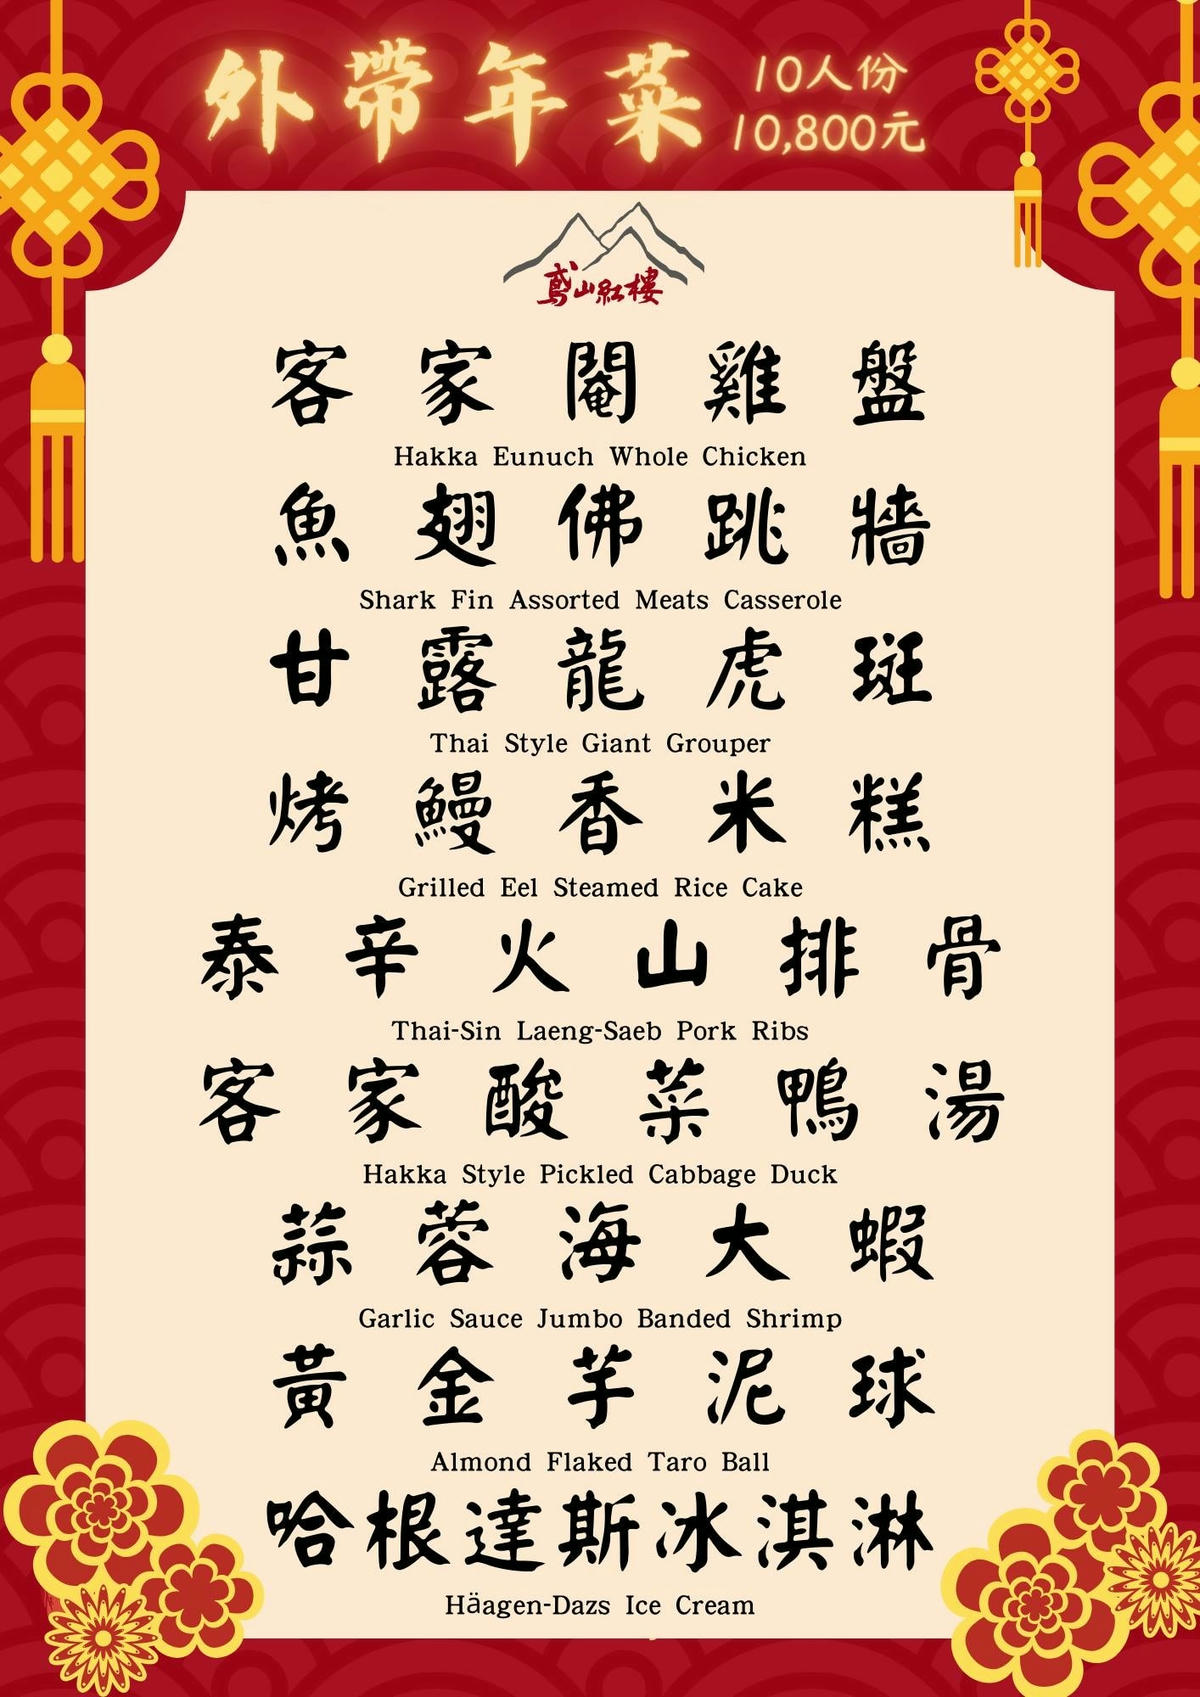 外帶年菜
10人份
10,800元
鳶山紅樓
客家閹雞盤
Hakka Eunuch Whole Chicken
魚翅佛跳牆
Shark Fin Assorted Meats Casserole
甘露龍虎斑
Thai Style Giant Grouper
烤鰻香米糕
Grilled Eel Steamed Rice Cake
泰辛火山排骨
Thai-Sin Laeng-Saeb Pork Ribs
客家酸菜鴨湯
Hakka Style Pickled Cabbage Duck
蒜蓉海大蝦
Garlic Sauce Jumbo Banded Shrimp
黃金芋泥球
Almond Flaked Taro Ball
哈根達斯冰淇淋
Häagen-Dazs Ice Cream